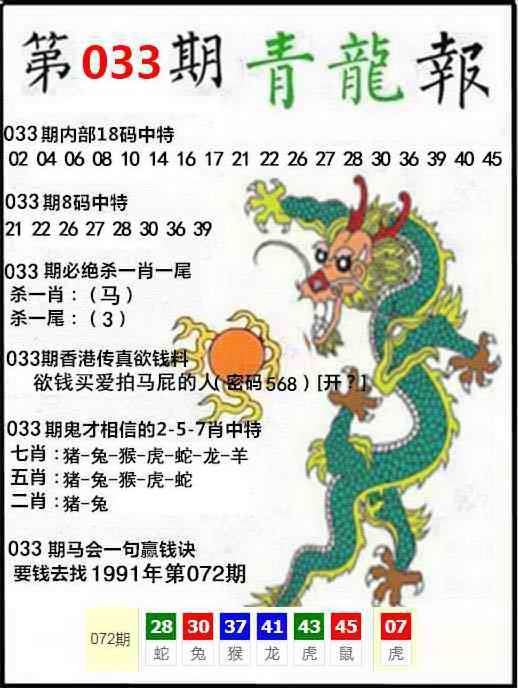 第033期青龍報
033期内部18码中特
02 04 06 08 10 14 16 17 21 22 26 27 28 30 36 39 40 45
033期8码中特
21 22 26 27 28 30 36 39
033 期必绝杀一肖一尾
杀一肖：（马）
杀一尾：（3）
033期香港传真欲钱料
欲钱买爱拍马屁的人（密码568）[开？]
033期鬼才相信的2-5-7肖中特
七肖：猪-兔-猴-虎-蛇-龙-羊
五肖：猪-兔-猴-虎-蛇
二肖：猪-兔
033 期马会一句赢钱诀
要钱去找1991年第072期
072期 28 30 37 41 43 45 07
蛇 兔 猴 龙 虎 鼠 虎